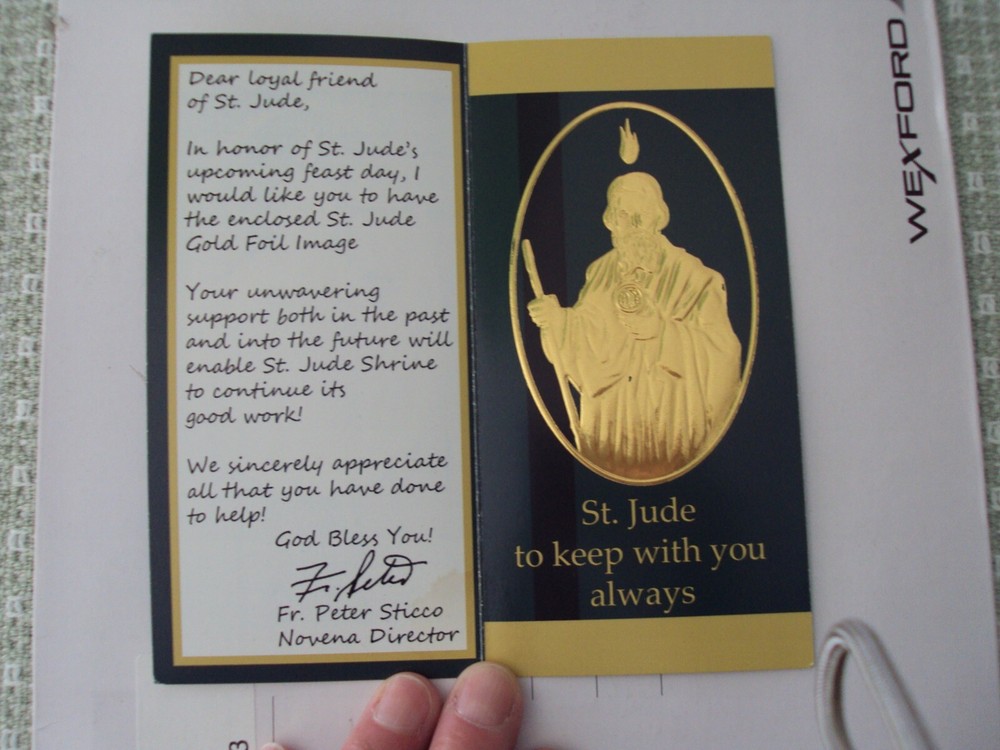 Dear loyal friend
of St. Jude,
In honor of St. Jude's
upcoming feast day, I
would like you to have
the enclosed St. Jude
Gold Foil Image
Your unwavering
support both in the past
and into the future will
enable St. Jude Shrine
to continue its
good work!
We sincerely appreciate
all that you have done
to help!
God Bless You!
Fr. Peter
Fr. Peter Sticco
Novena Director
St. Jude
to keep with you
always
WEXFORD
3